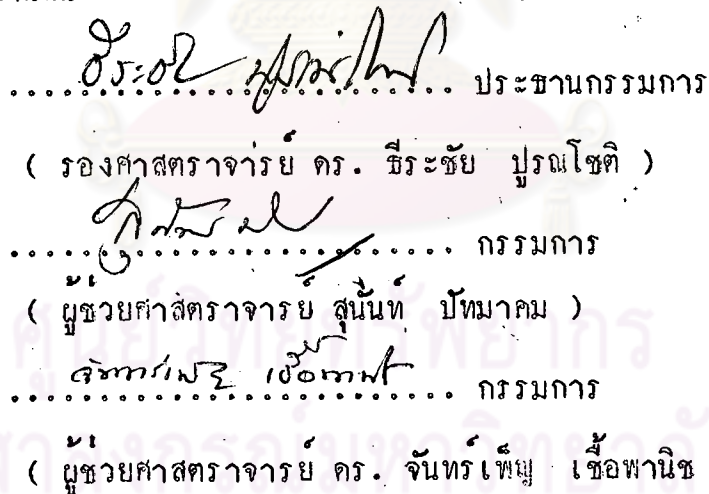 ธีระชัย ปูรณโชติ ประธานกรรมการ
( รองศาสตราจารย์ ดร. ธีระชัย ปูรณโชติ )
กรรมการ
( ผู้ช่วยศาสตราจารย์ สุนันท์ ปัทมาคม )
จันทร์เพ็ญ เชื้อพานิช กรรมการ
( ผู้ช่วยศาสตราจารย์ ดร. จันทร์เพ็ญ เชื้อพานิช